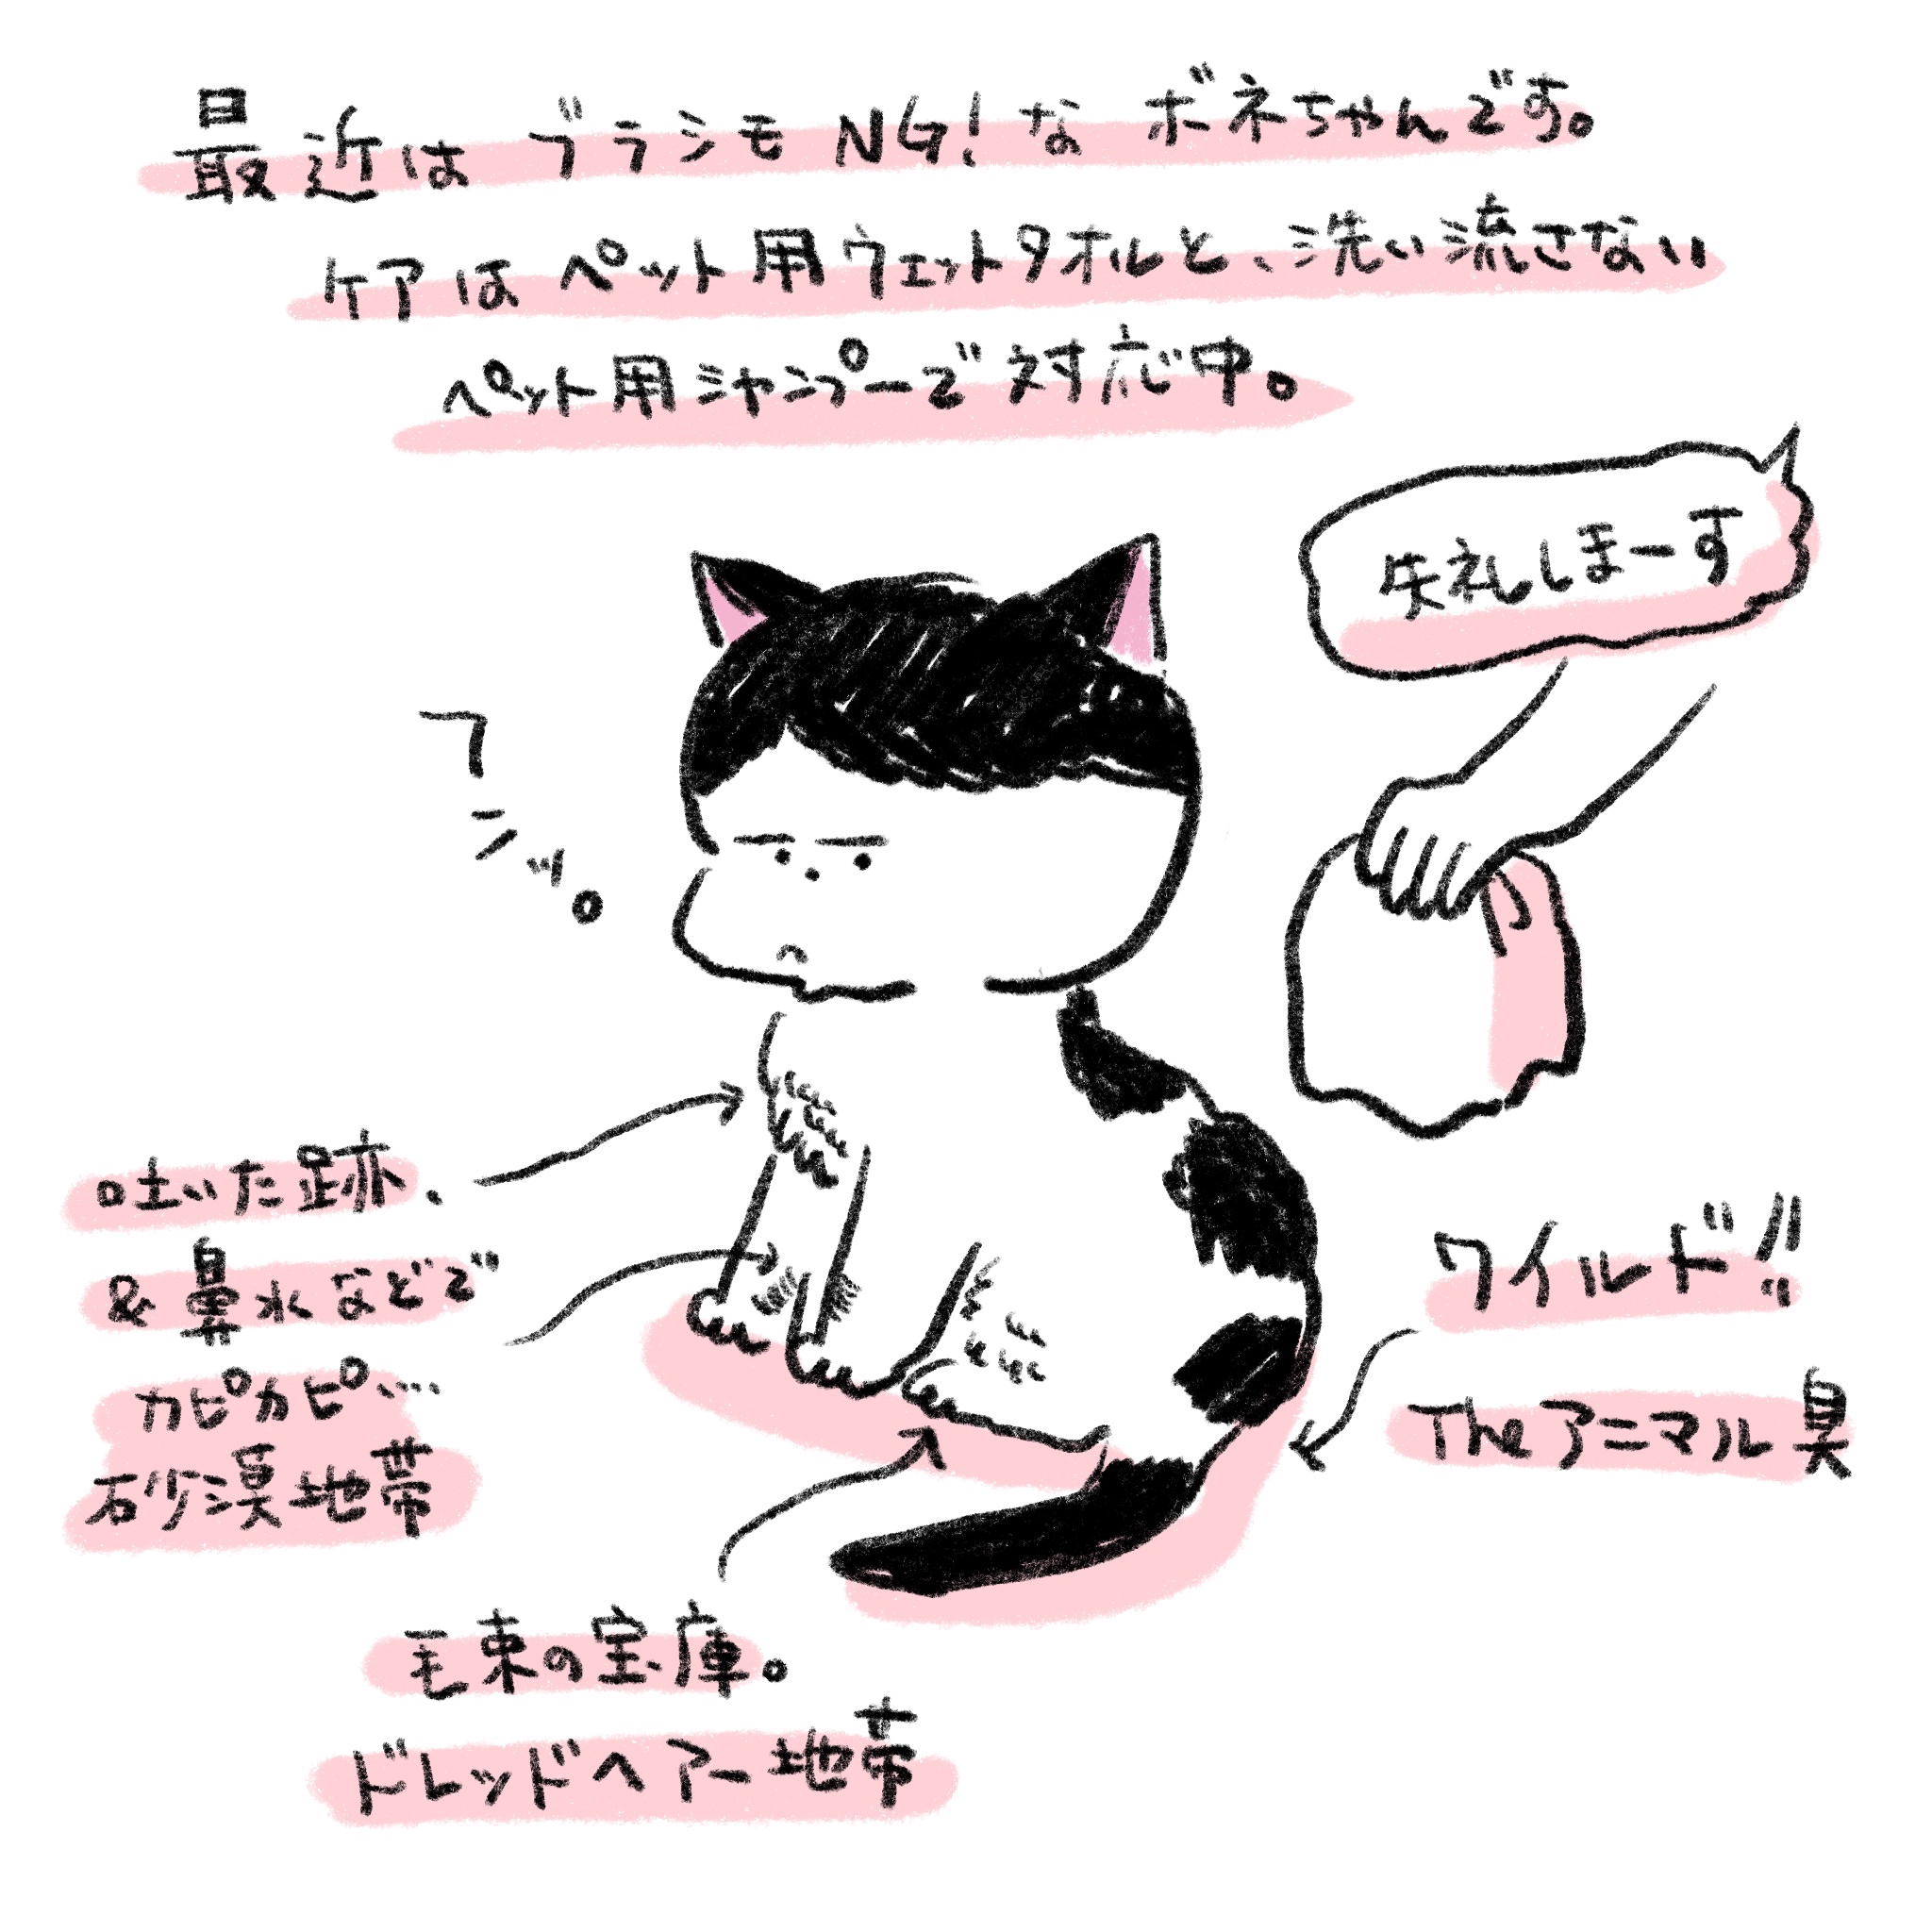 最近はブラシモNG!なボネちゃんです。
ケアはペット用ウェットタオルと、洗い流さない
ペット用シャンプーで対応中。
失礼しまーす
フンッ。
吐いた跡、
&鼻水などで
カピカピ…
砂漠地帯
ワイルド!!
Theアニマル臭
毛束の宝庫。
ドレッドヘアー地帯